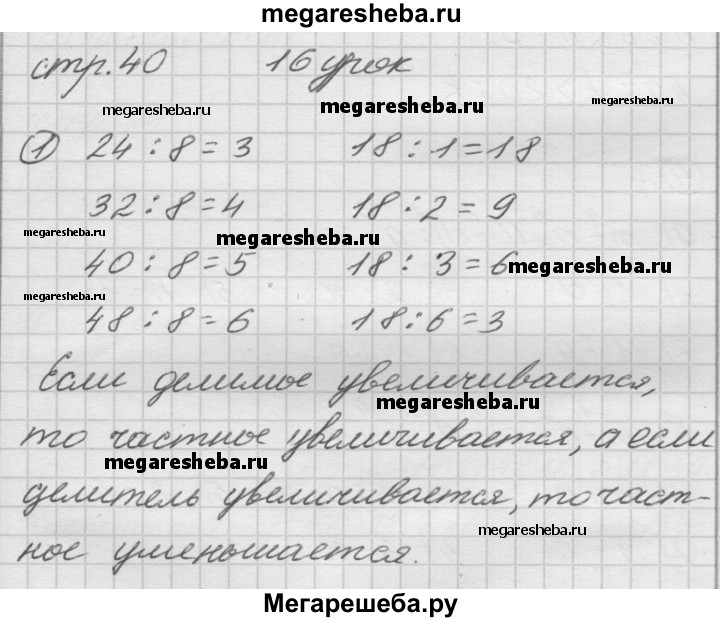 megaresheba.ru
стр.40 16 урок
megaresheba.ru megaresheba.ru megaresheba.ru
① 24 : 8 = 3 18 : 1 = 18
32 : 8 = 4 18 : 2 = 9
megaresheba.ru megaresheba.ru
40 : 8 = 5 18 : 3 = 6 megaresheba.ru
megaresheba.ru
48 : 8 = 6 18 : 6 = 3
Если делимое увеличивается,
megaresheba.ru
то частное увеличивается, а если
megaresheba.ru
делитель увеличивается, то част-
megaresheba.ru
ное уменьшается.
Мегарешеба.ру